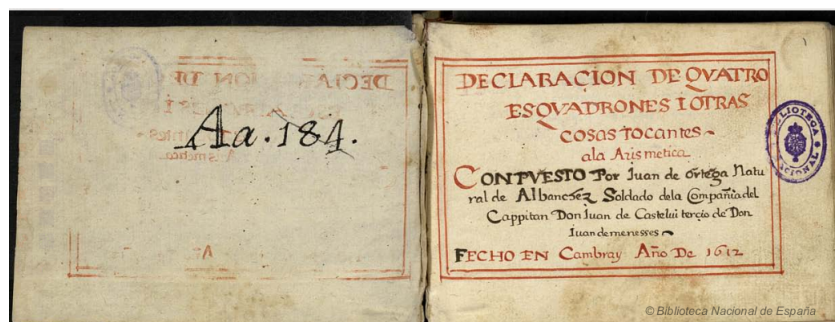 Aa.184.
DECLARACION DE QVATRO
ESQVADRONES I OTRAS
COSAS TOCANTES
ala Arismetica
CONPVESTO Por Juan de ortega Natu
ral de Albanchez Soldado dela Compañia del
Cappitan Don Juan de Castelui terçio de Don
Iuan de menesses
FECHO EN Cambray Año De 1612
BIOTECA
NACIONAL
© Biblioteca Nacional de España